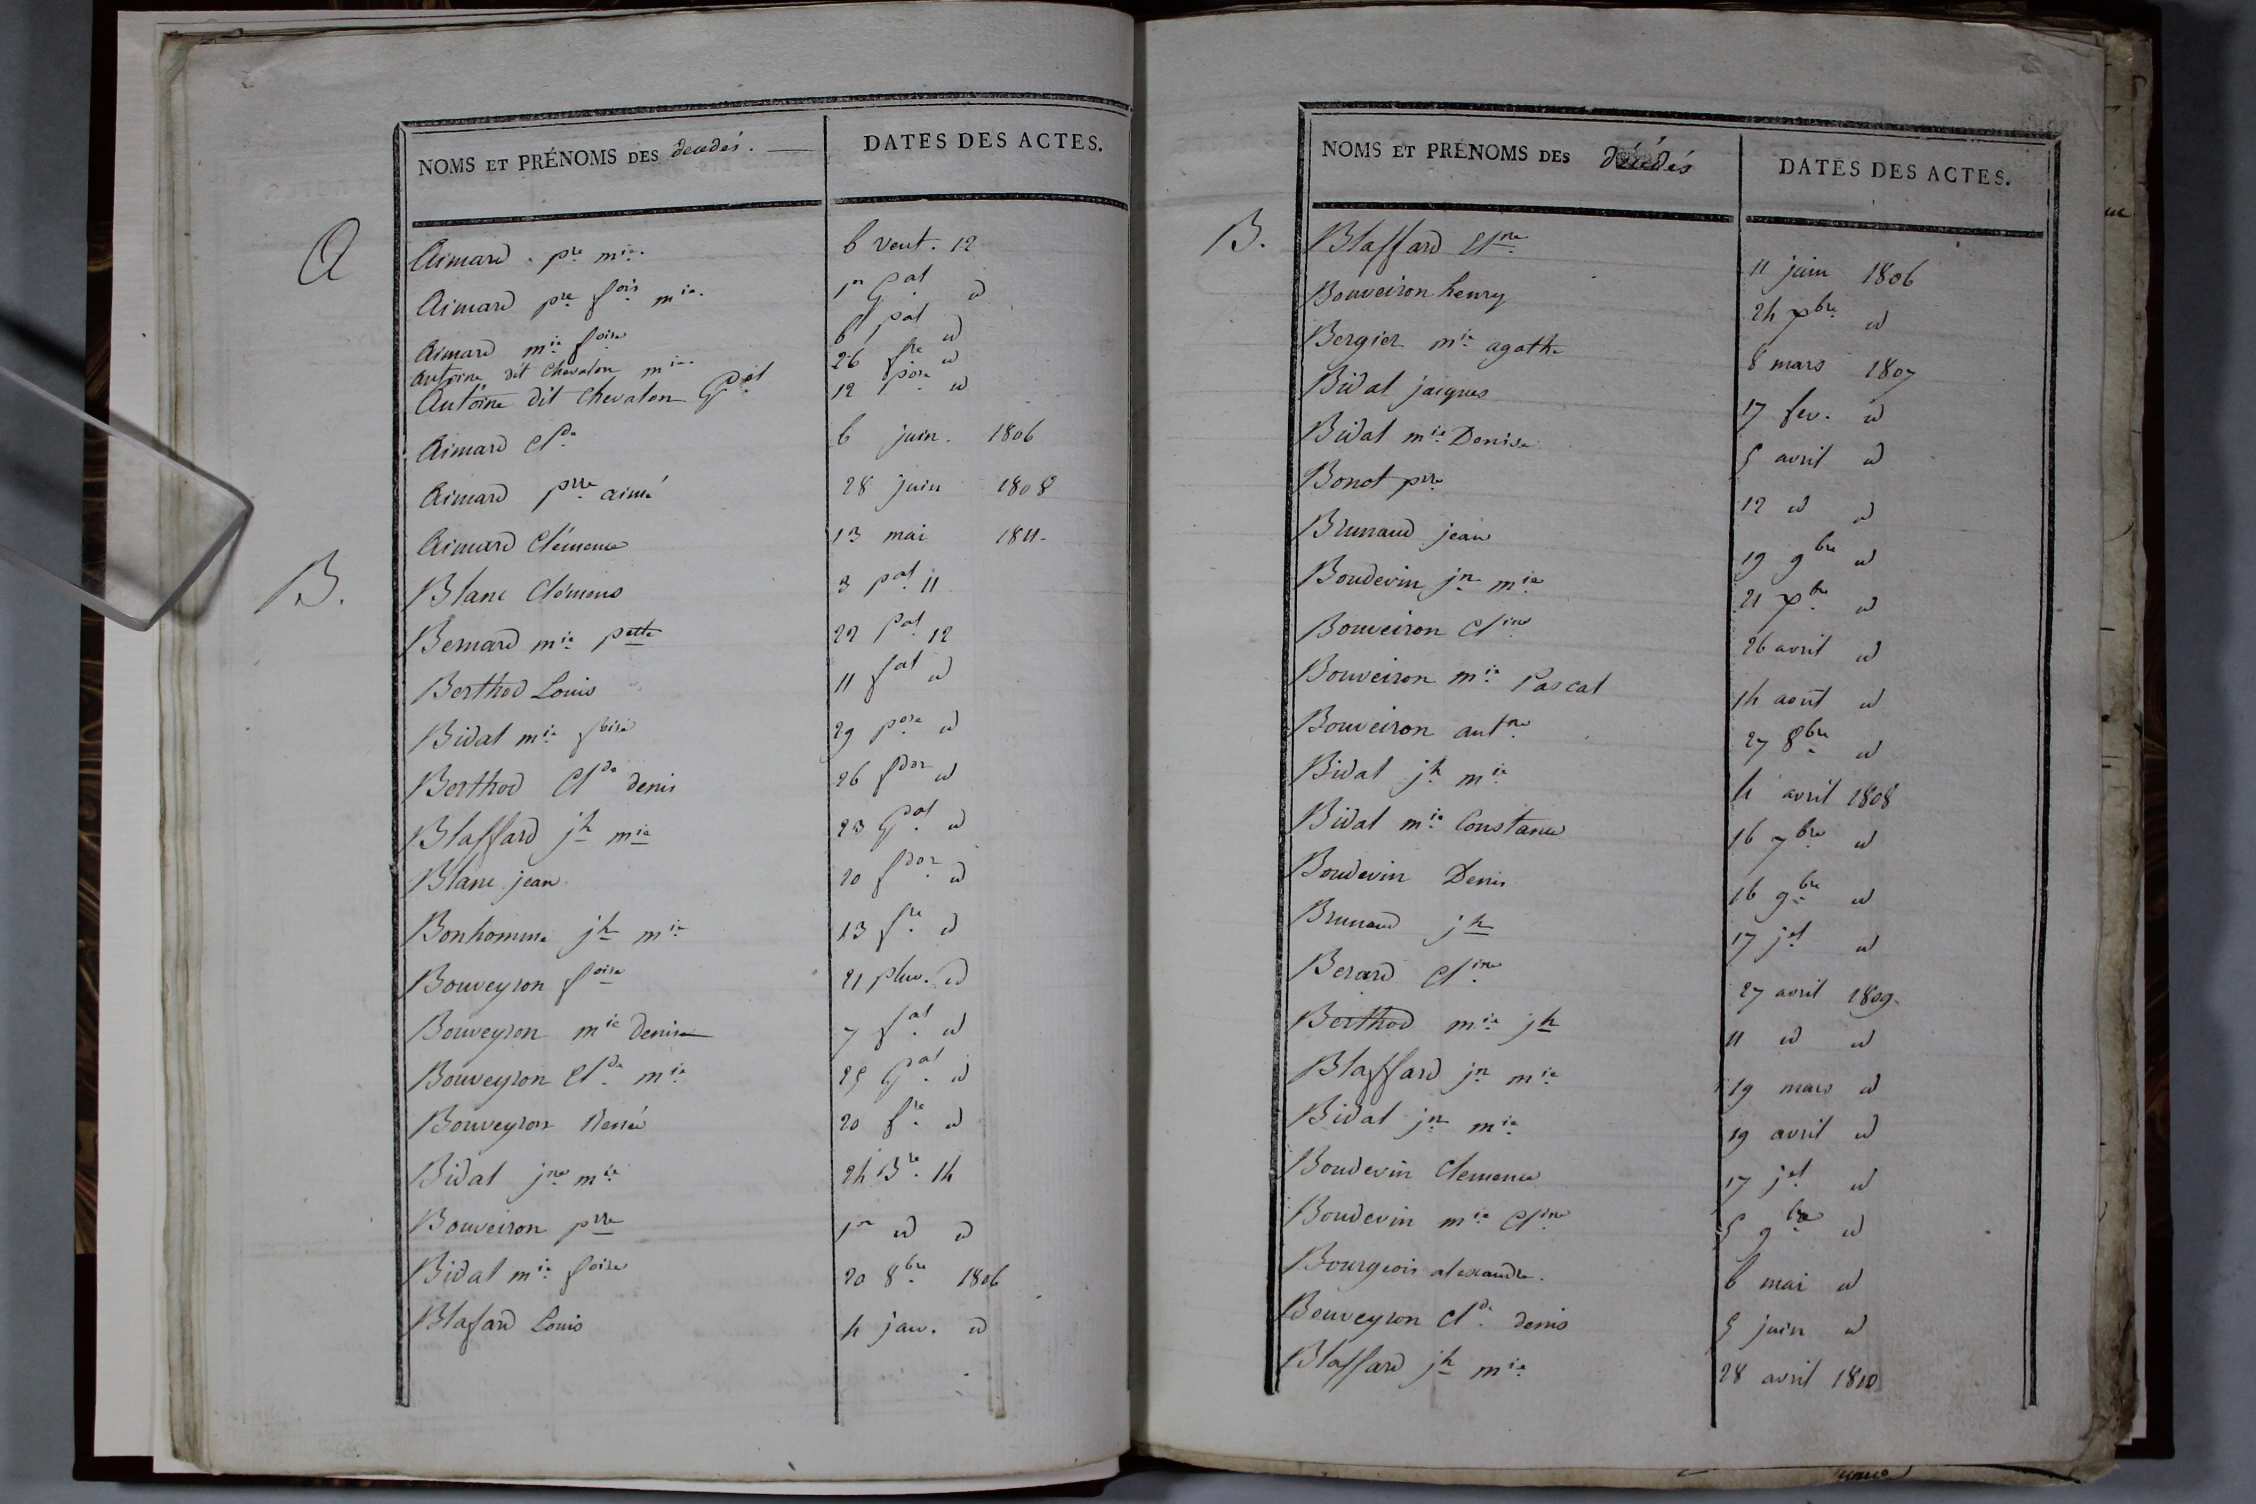 NOMS ET PRÉNOMS DES décédés. DATES DES ACTES.
A Aimard pre mie. 6 vent. 12
Aimard pre fois mie. 1er Gal d
Aimard mie foise 6 pal d
Antoine dit Chevalon mie 26 fre d
Antoine dit Chevalon 12 pose d
Aimard Clde 6 juin. 1806
Aimard prre aimé 28 juin 1808
Aimard Clémence 13 mai 1811.
B. Blanc Clémens 3 pal 11
Bernard mie pette 22 pal 12
Berthod Louis 11 fal d
Bidal mie foise 29 pose d
Berthod Clde denis 26 fdor d
Blaffard jh mie 23 Gal d
Blanc jean 20 fdor d
Bonhomme jh mie 13 fre d
Bouveyron foise 21 pluv. d
Bouveyron mie Denise 7 fal d
Bouveyron Clde mie 25 Gal d
Bouveyron René 20 fre d
Bidal jne mie 24 Bre 14
Bouveiron prre 1er d d
Bidal mie foise 20 8bre 1806
Blafard Louis 4 janv. d
NOMS ET PRÉNOMS DES décédés DATES DES ACTES.
B. Blaffard Clne 11 juin 1806
Bouveiron henry 24 xbre d
Bergier mie agathe 8 mars 1807
Bidal jacques 17 fev. d
Bidal mie Denise 5 avril d
Bonot prre 12 d d
Brunaud jean 19 9bre d
Boudevin jn mie 21 xbre d
Bouveiron Cline 26 avril d
Bouveiron mie Pascal 14 août d
Bouveiron antne 27 8bre d
Bidal jh mie 4 avril 1808
Bidal mie Constance 16 7bre d
Boudevin Denis 16 9bre d
Brunaud jh 17 jet d
Berard Cline 27 avril 1809.
Berthod mie jh 11 d d
Blaffard jn mie 19 mars d
Bidal jn mie 19 avril d
Boudevin Clemence 17 jet d
Boudevin mie Cline 5 9bre d
Bourgeois alexandre. 6 mai d
Bouveyron Clde denis 5 juin d
Blaffard jh mie 28 avril 1810